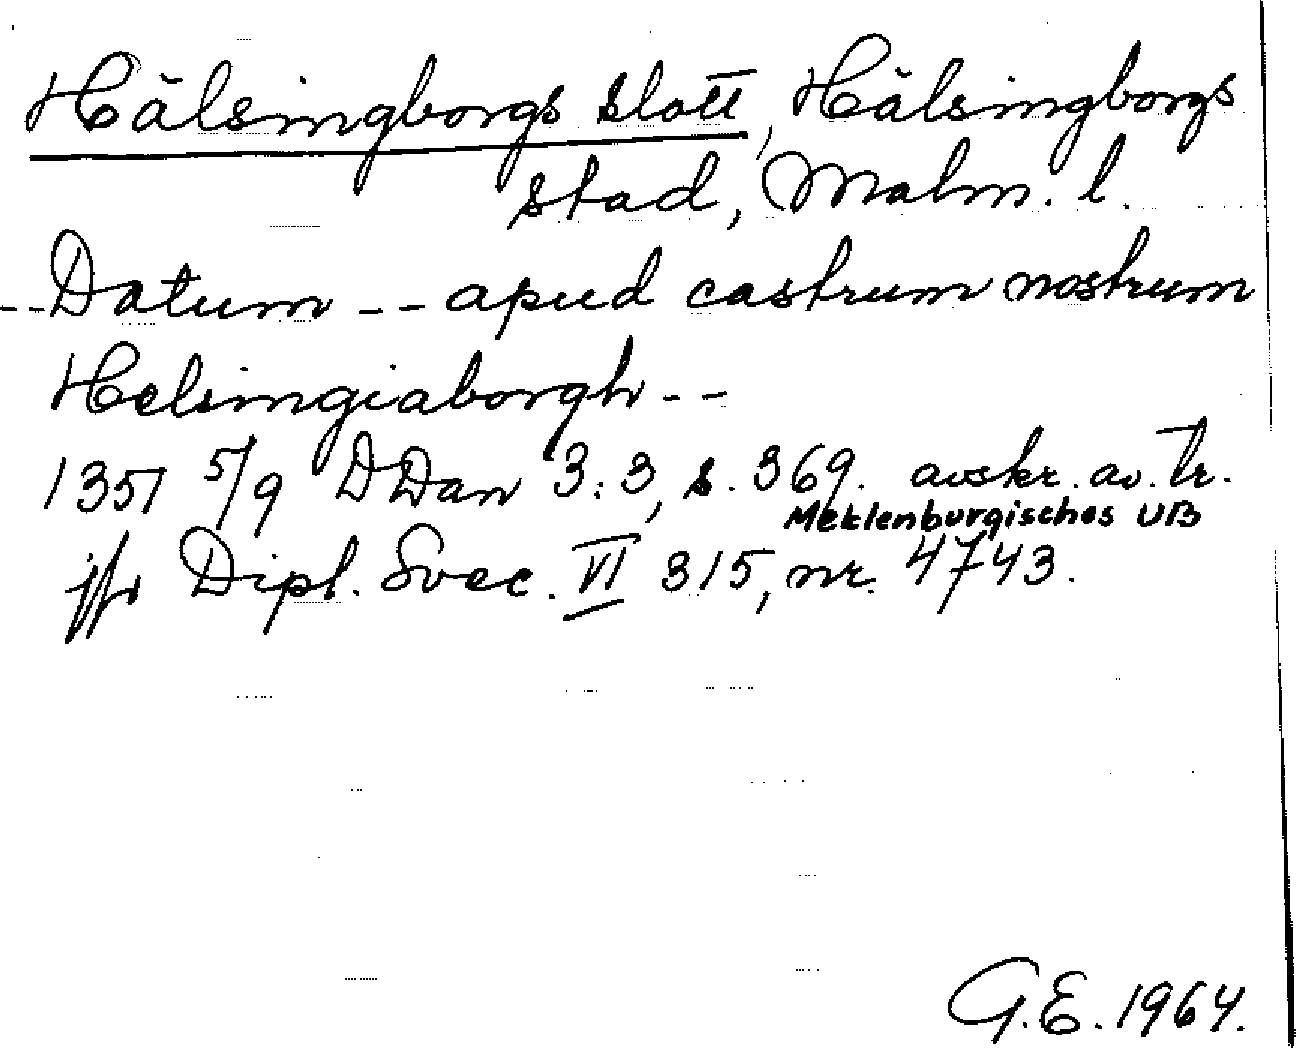 Hälsingborgs slott, Hälsingborgs
stad, Malm. l.
--Datum -- apud castrum nostrum
Helsingiaborgh --
1351 5/9 DDan 3:3, s. 369. avskr. av. tr.
Meklenburgisches UB
jfr Dipl. Svec. VI 315, nr. 4743.
G.E. 1964.